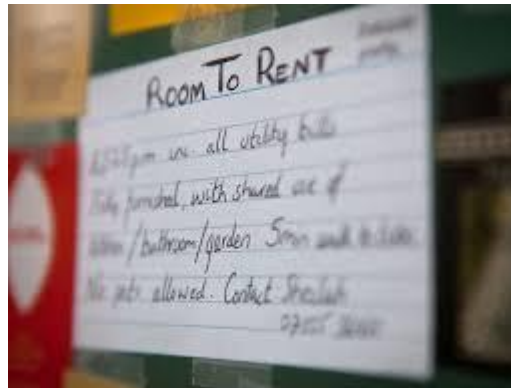 ROOM TO RENT
inc. all utility bills
furnished, with shared use of
/bathroom/garden 5min walk
No pets allowed. Contact Sheilah